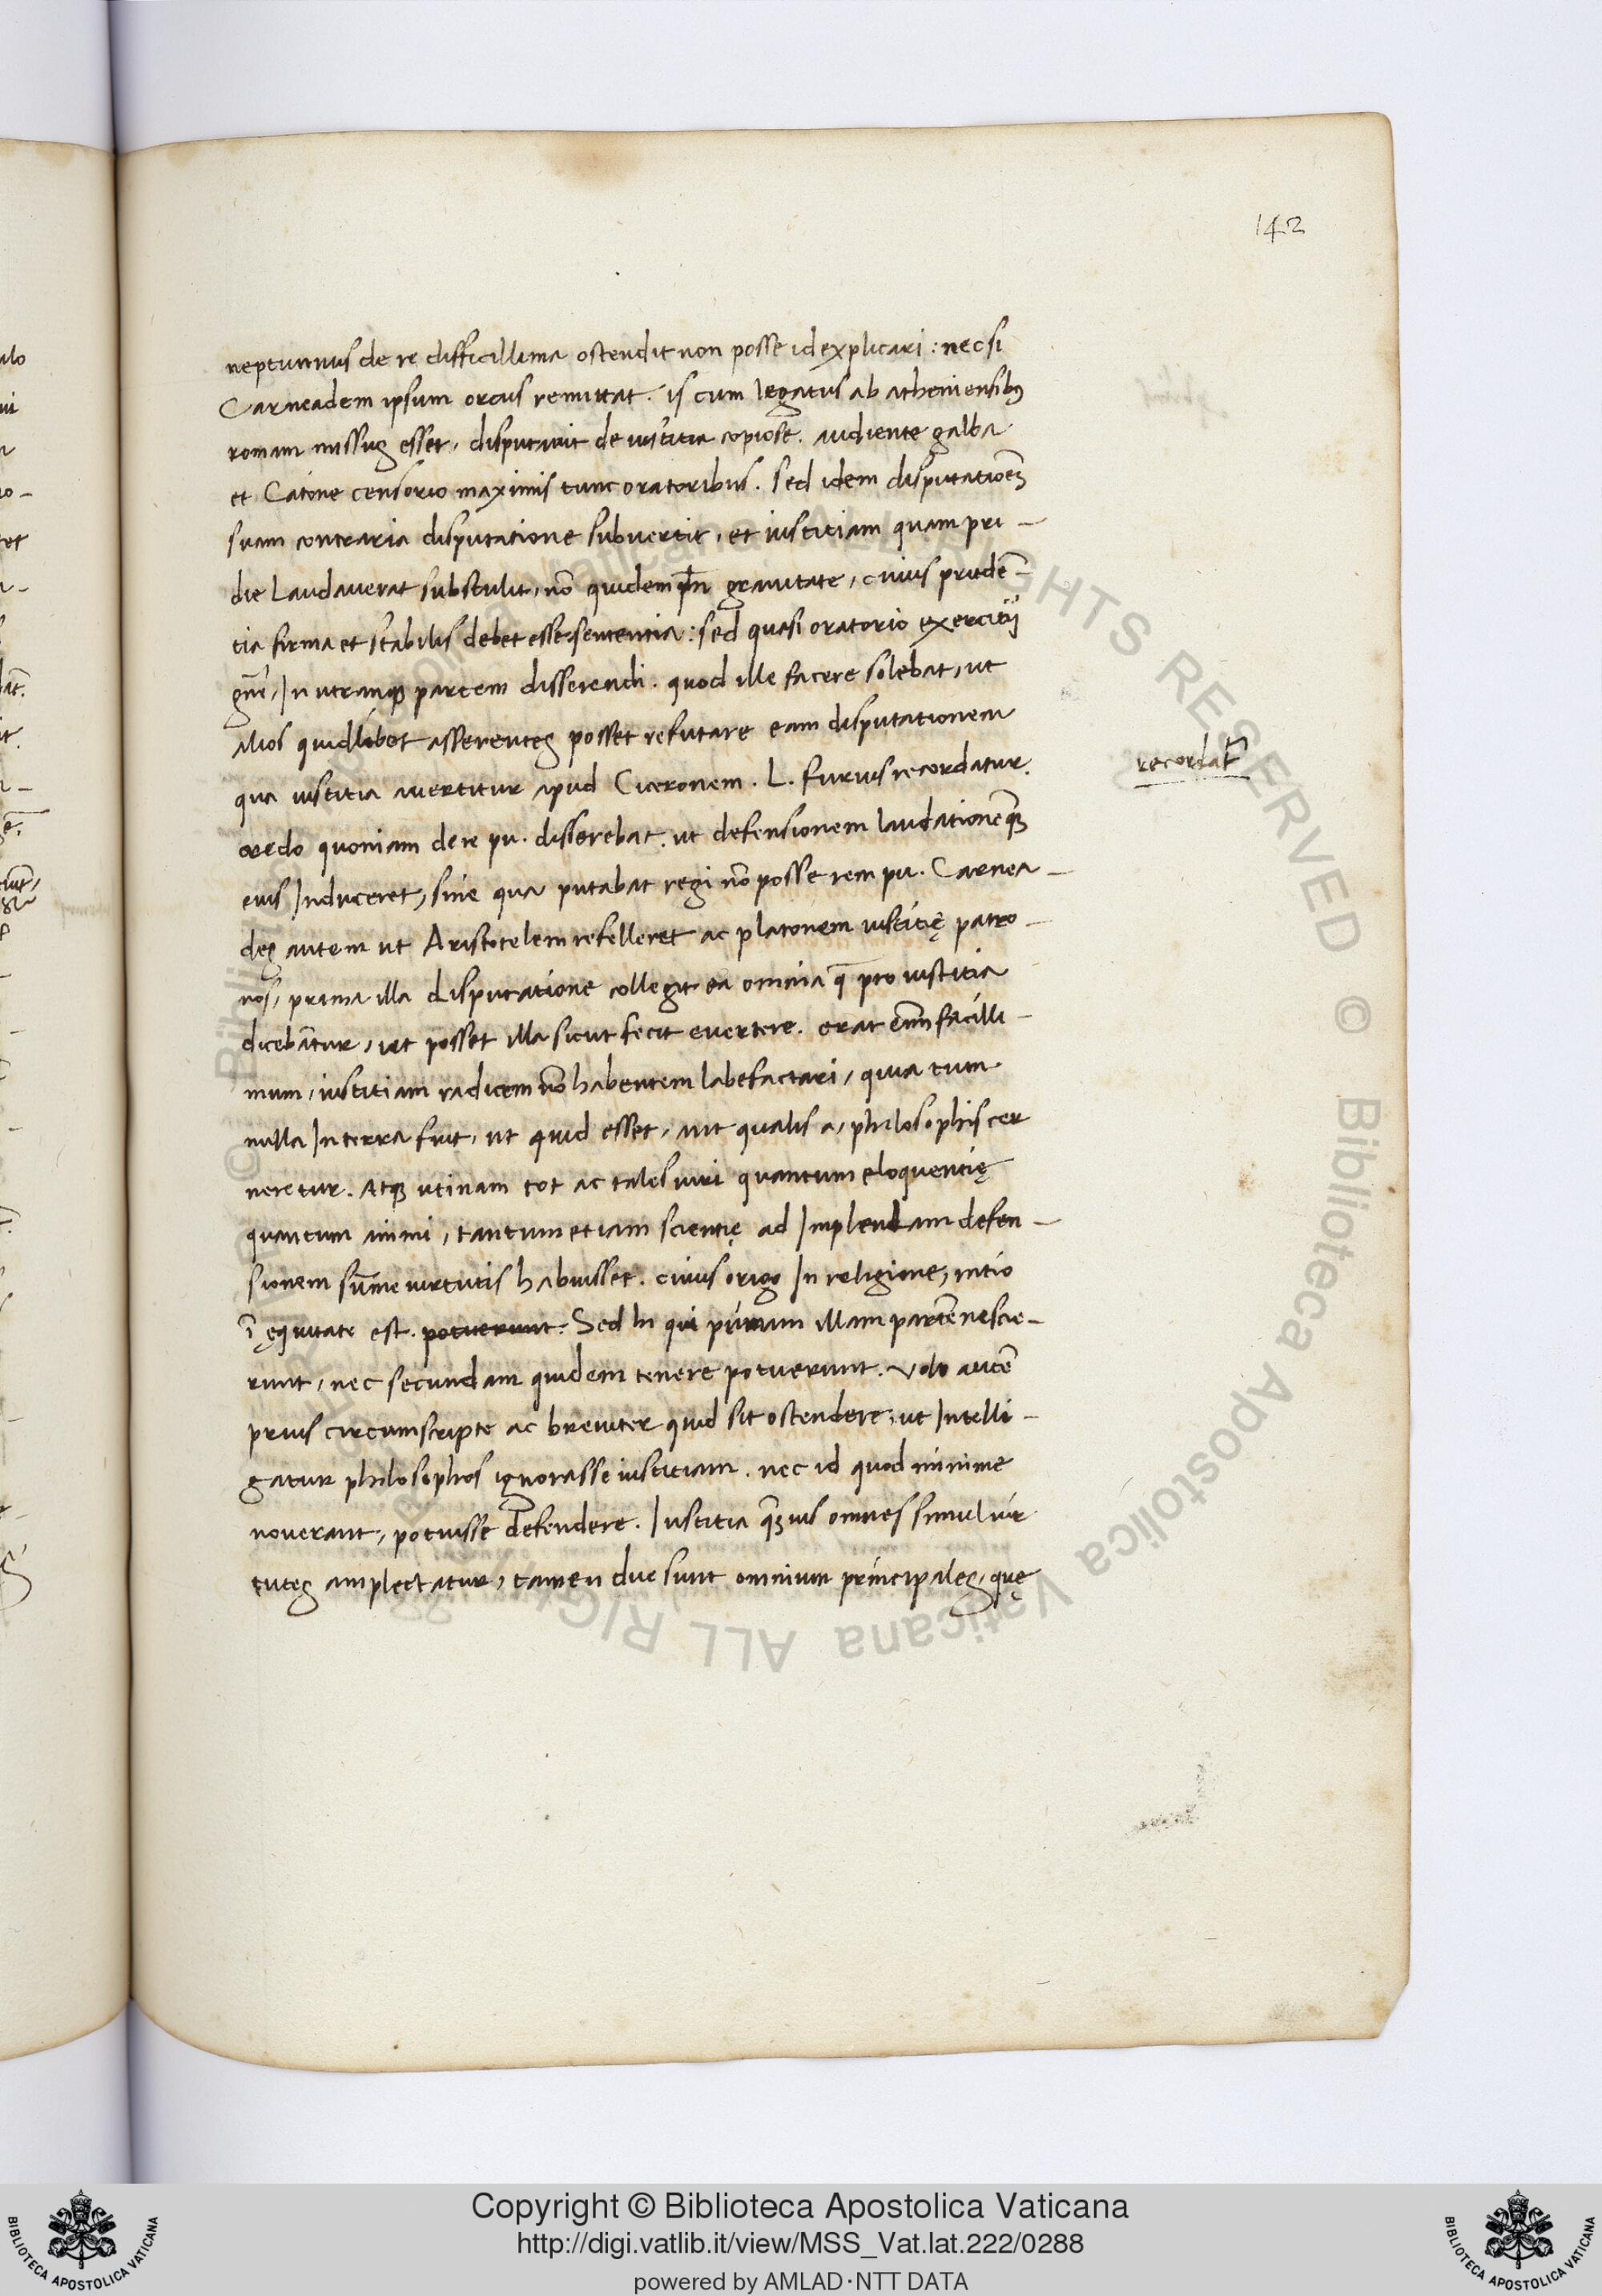 142
neptunnus de re difficillima ostendit non posse id explicari : nec si
Carneadem ipsum orcus remittat . is cum legatus ab atheniensibꝫ
romam missus esset , disputauit de iustitia copiose . audiente galba
et Catone censorio maximis tunc oratoribus . Sed idem disputationē
suam contraria disputatione subuertit , et iustitiam quam pri -
die Laudauerat substulit , nō quidem gravitate , cuius prudē -
tia firma et stabilis debet esse sententia : sed quasi oratorio exercitij
gn̄e , In utranqꝫ partem disserendi . quod ille facere solebat , ut
alios quidlibet asserentes posset refutare eam disputationem
qua iustitia auertitur apud Ciceronem . L . furius recordatur .
recordat᷑
credo quoniam de re pu . disserebat . ut defensionem laudationēqꝫ
eius Induceret , sine qua putabat regi nō posse rem pu . Carnea -
des autem ut Aristotelem refelleret ac platonem iustitię patro -
nos , prima illa disputatione collegit ea omnia q̄ pro iustitia
dicebāntur , ut posset illa sicut fecit euertere . erat enī facilli -
mum , iustitiam radicem nō habentem labefactari , quia tum
nulla In terra fuit , ut quid esset , aut qualis a , philosophis cer
neretur . atqꝫ utinam tot ac tales uiri quantum eloquentię
quantum animi , tantum etiam scientię ad Implendam defen -
sionem sūme uirtutis habuisset . cuius origo In religione , ratio
ī ęquitate est . potuerunt . Sed hi qui primam illam partē nescie -
runt , nec secundam quidem tenere potuerunt . volo autē
prius circumscripte ac breuiter quid sit ostendere , ut Intelli -
gatur philosophos ignorasse iustitiam . nec id quod minime
nouerant , potuisse defendere . Iustitia q̄uis omnes simul uir
tutes amplectatur , tamen due sunt omnium principales , quę
Copyright © Biblioteca Apostolica Vaticana
http://digi.vatlib.it/view/MSS_Vat.lat.222/0288
powered by AMLAD·NTT DATA
© Biblioteca Apostolica Vaticana ALL RIGHTS RESERVED
BIBLIOTECA APOSTOLICA VATICANA
BIBLIOTECA APOSTOLICA VATICANA